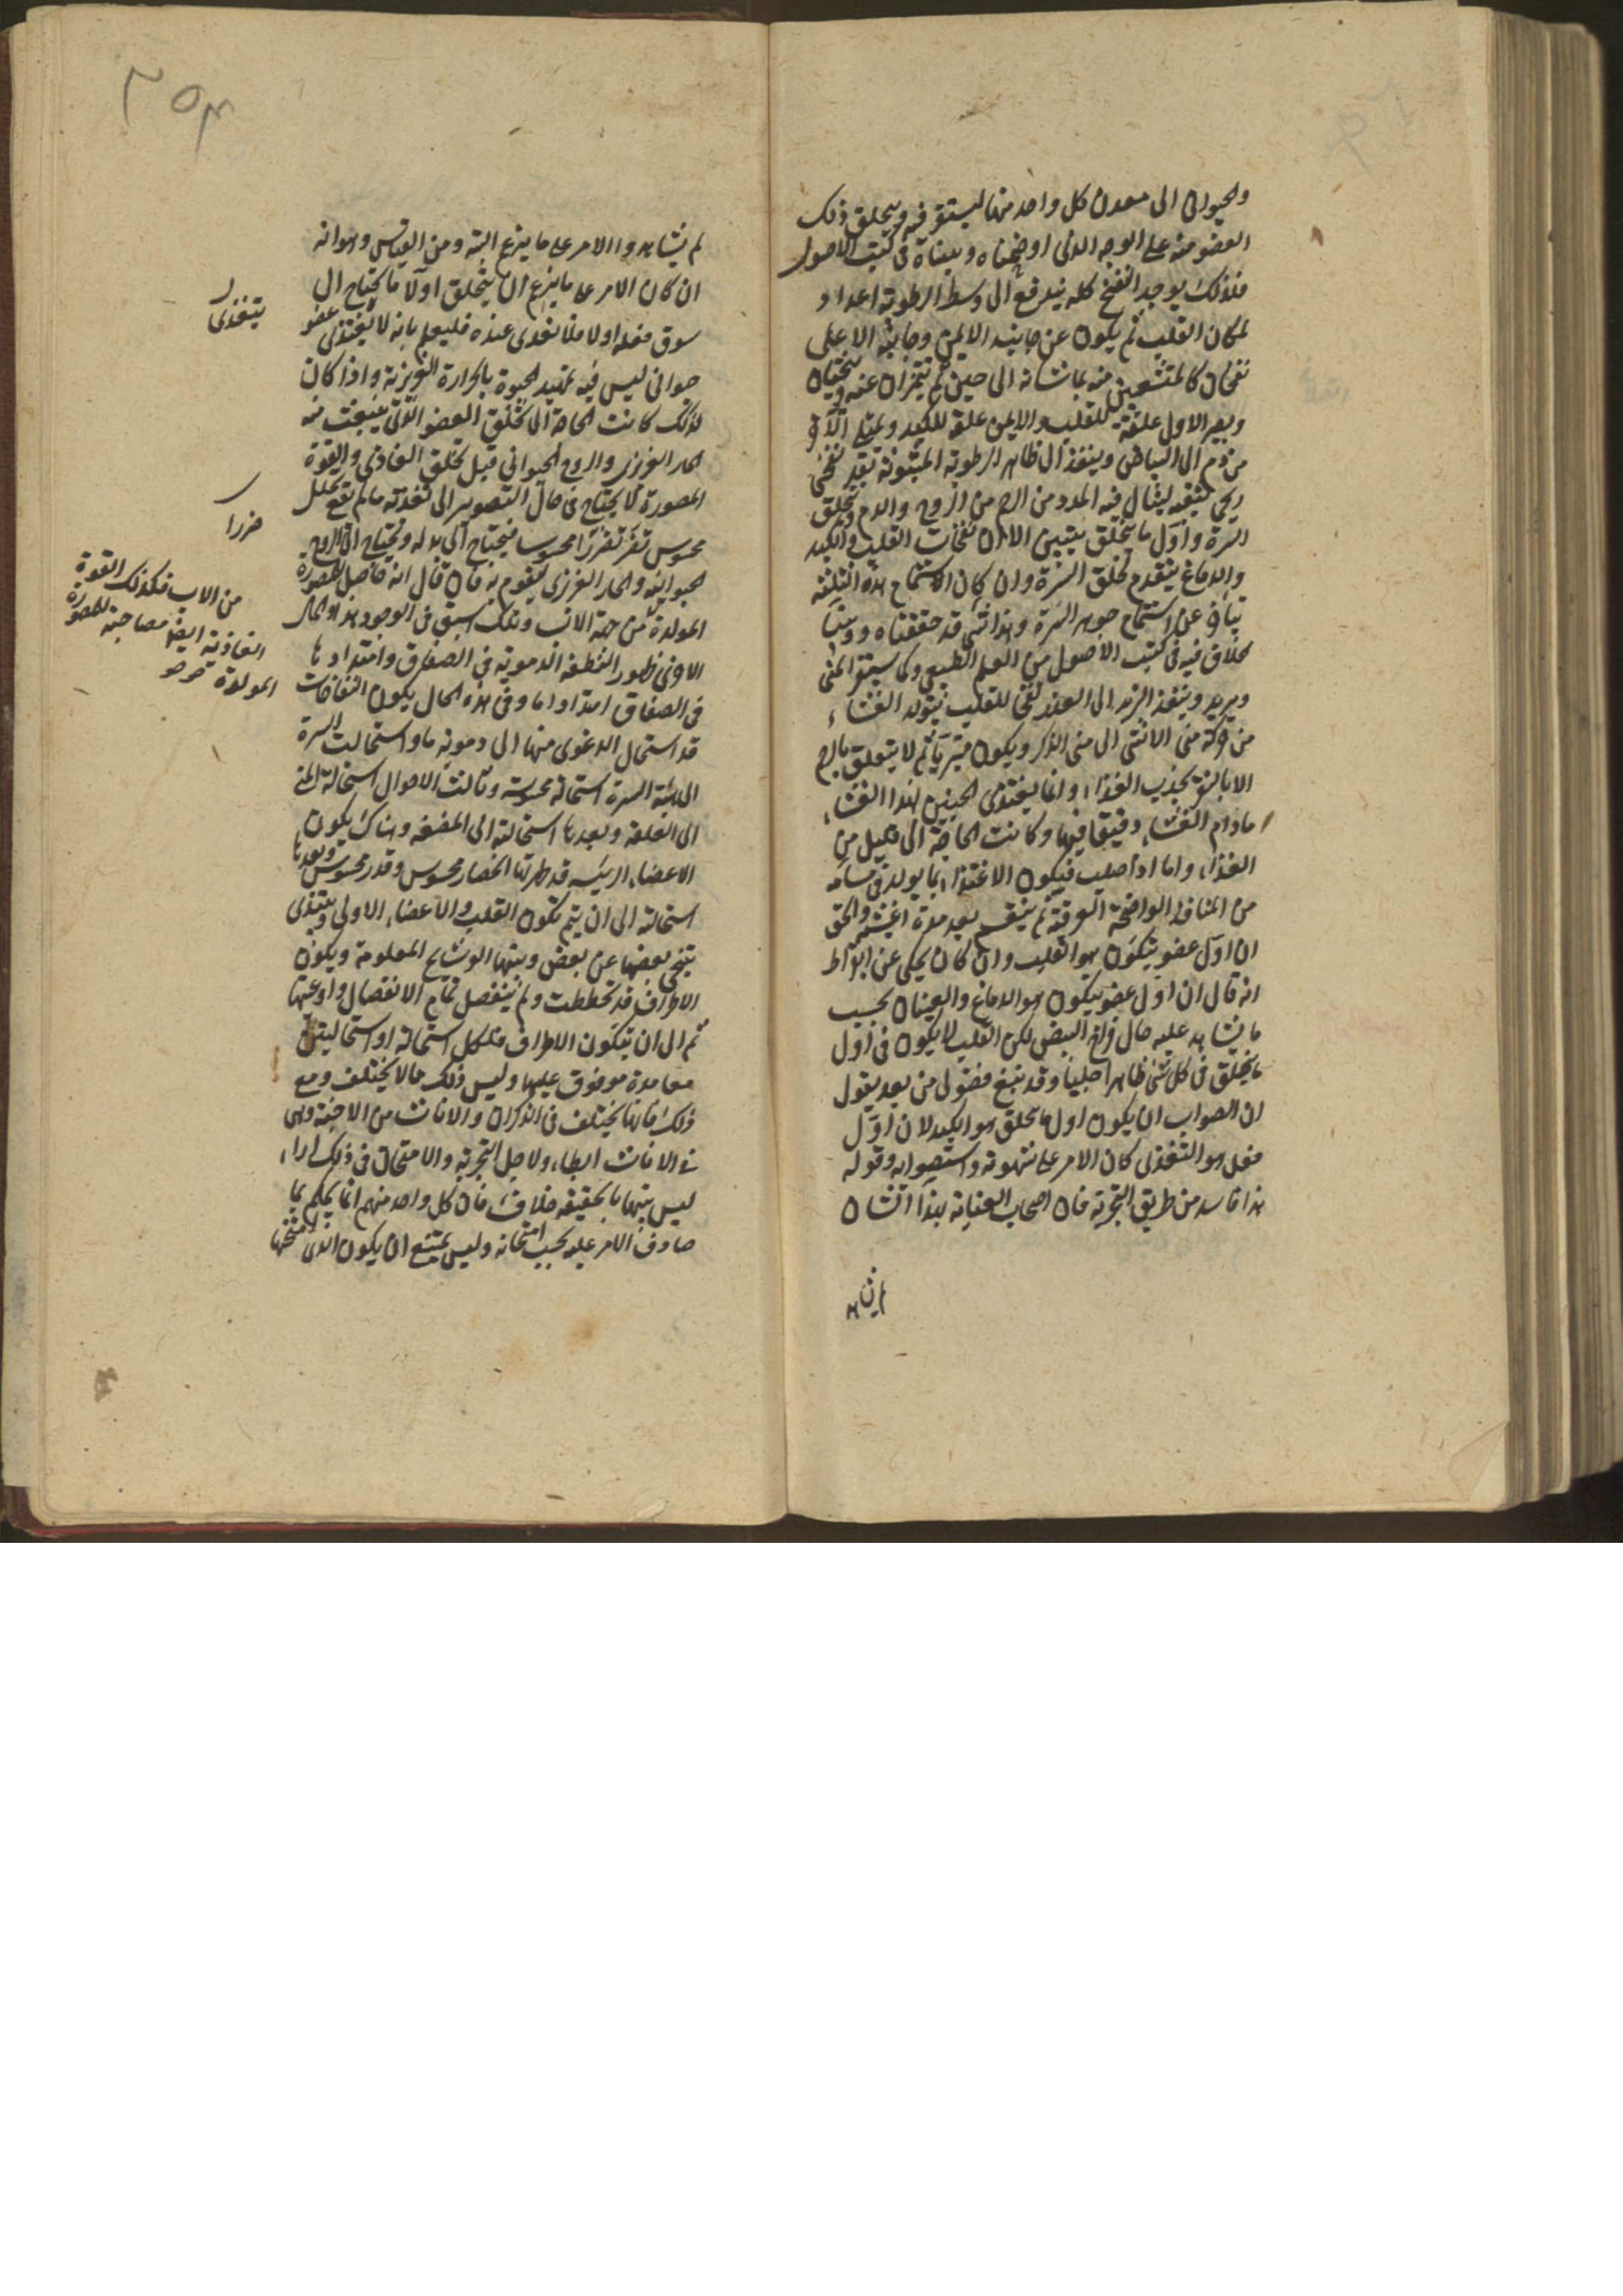 والحيوان الى معدن كل واحد منها ليستقر فيه ويتخلق ذلك
العضو منه على الوجه الذى اوضحناه وبيناه فى كتب الاصول
فلذلك يوجد النفخ كله يندفع الى وسط الرطوبة اعدادا
لمكان القلب ثم يكون عن جانبه الايمن وجانبه الاعلى
نفخان كالمتشعبين منه يماسانه الى حين ثم يتميزان عنه ويتنحيان
ويصير الاول علقة للقلب والايمن علقة للكبد ويمتلى الآخر
من دم الى البياض وينفذ الى ظاهر الرطوبة المبثوثة نفخ
ريحى يثقبه لينال فيه المدد من الرحم من الروح والدم ويتخلق
السرة واول ما يتخلق يتبين الا ان نفخات القلب والكبد
والدماغ يتقدم تخلق السرة وان كان استتمام هذه الثلثة
يتأخر عن استتمام جوهر السرة وهذا شىء قد حققناه وبينا
الخلاف فيه فى كتب الاصول من العلم الطبيعى وكما يستقر المنى
ويزبد وينفذ الزبد الى الغور نفخى للقلب يتولد الغشاء
من حركة منى الانثى الى منى الذكر ويكون متبريا ثم لا يتعلق بالرحم
الا بالنقر لجذب الغذاء وانما يغتذى الجنين بهذا الغشاء
مادام الغشاء رقيقا فيها وكانت الحاجة الى قليل من
الغذاء واما اذا صلب فيكون الاغتذاء بما يولد فى مسامه
من المنافذ الواضحة العرقية ثم ينقسم بعد مدة اغشية والحق
ان اول عضو يتكون هو القلب وان كان يحكى عن ابقراط
انه قال ان اول عضو يتكون هو الدماغ والعينان بحسب
ما يشاهد عليه حال فراخ البيض لكن القلب لا يكون فى اول
ما يتخلق فى كل شئ ظاهرا جليا وقد نبغ فضولى من بعد يقول
ان الصواب ان يكون اول ما يتخلق هو الكبد لان اول
فعل هو التغذى كان الامر على شهوته واستصوابه وقوله
هذا فاسد من طريق التجربة فان اصحاب العناية بهذا الشان
لم يشاهد
لم يشاهدوا الامر على ما يزعم البتة ومن القياس وهو انه
ان كان الامر على ما يزعم انه يتخلق اولا ما يحتاج الى
سوق فعله اولا فلا تغذى عنده فليعلم بانه لا يغتذى عضو
حيوانى ليس فيه تمهيد الحيوة بالحرارة الغريزية واذا كان
كذلك كانت الحاجة الى تخلق العضو الذى ينبعث منه
الحار الغريزى والروح الحيوانى قبل تخلق الغاذى والقوة
المصورة لا يحتاج فى حال التصوير الى تغذية ما لم يقع تحلل
محسوس تضر تضررا محسوسا فيحتاج الى بدله ويحتاج الى الروح
الحيوانية والحار الغريزى ليقوم به فان قال انه حاصل للمصورة
المولدة من جهة الاب وتلك اسبق فى الوجود هذا والحال
الاخرى ظهور النطفة الدموية فى الصفاق وامتدادها
فى الصفاق امتدادا ما وفى هذه الحال يكون النفاخات
قد استحال الرغوى منها الى دموية ما واستحالت السرة
الى هيئة السرة استحالة محسوسة وثالث الاحوال استحالة المنى
الى العلقة وبعدها استحالته الى المضغة وهناك يكون
الاعضاء الرئيسة قد ظهر لها انفصال محسوس وقدر محسوس وبعدها
استحالته الى ان يتم تكون القلب والاعضاء الاولى ويبتدى
يتنحى بعضها عن بعض وبينها الوشايج المعلومة ويكون
الاطراف قد تخططت ولم ينفصل تمام الانفصال واوعيتها
ثم الى ان يتكون الاطراف ولكل استحالة او استحالتين
معا مدة موقوف عليها وليس ذلك مما لا يختلف ومع
ذلك فانها يختلف فى الذكران والاناث من الاجنة وهى
فى الاناث ابطاء ولاهل التجربة والامتحان فى ذلك اراء
ليس بينها بالحقيقة خلاف فان كل واحد منهم انما يحكم بما
صادف الامر عليه بحسب امتحانه وليس يمتنع ان يكون الذى امتحنها
يتغذى
ضررا
من الاب فكذلك القوة
الغاذية ايضا مصاحبة للمصورة
المولدة